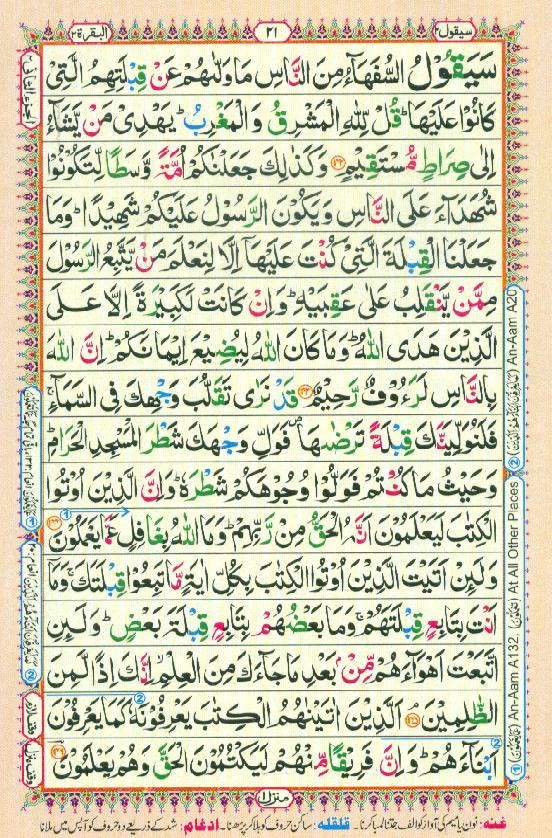 سیقول ٢
٢١
البقرة ٢
سَيَقُوْلُ السُّفَهَآءُ مِنَ النَّاسِ مَا وَلّٰىهُمْ عَنْ قِبْلَتِهِمُ الَّتِىْ
كَانُوْا عَلَيْهَا ؕ قُلْ لِّلّٰهِ الْمَشْرِقُ وَ الْمَغْرِبُ ؕ يَهْدِىْ مَنْ يَّشَآءُ
اِلٰى صِرَاطٍ مُّسْتَقِيْمٍ ﴿۱۴۲﴾ وَ كَذٰلِكَ جَعَلْنٰكُمْ اُمَّةً وَّسَطًا لِّتَكُوْنُوْا
شُهَدَآءَ عَلَى النَّاسِ وَ يَكُوْنَ الرَّسُوْلُ عَلَيْكُمْ شَهِيْدًا ؕ وَ مَا
جَعَلْنَا الْقِبْلَةَ الَّتِىْ كُنْتَ عَلَيْهَآ اِلَّا لِنَعْلَمَ مَنْ يَّتَّبِعُ الرَّسُوْلَ
مِمَّنْ يَّنْقَلِبُ عَلٰى عَقِبَيْهِ ؕ وَ اِنْ كَانَتْ لَكَبِيْرَةً اِلَّا عَلَى
الَّذِيْنَ هَدَى اللّٰهُ ؕ وَ مَا كَانَ اللّٰهُ لِيُضِيْعَ اِيْمَانَكُمْ ؕ اِنَّ اللّٰهَ
بِالنَّاسِ لَرَءُوْفٌ رَّحِيْمٌ ﴿۱۴۳﴾ قَدْ نَرٰى تَقَلُّبَ وَجْهِكَ فِى السَّمَآءِ ۚ
فَلَنُوَلِّيَنَّكَ قِبْلَةً تَرْضٰىهَا ۪ فَوَلِّ وَجْهَكَ شَطْرَ الْمَسْجِدِ الْحَرَامِ ؕ
وَ حَيْثُ مَا كُنْتُمْ فَوَلُّوْا وُجُوْهَكُمْ شَطْرَهٗ ؕ وَ اِنَّ الَّذِيْنَ اُوْتُوا
الْكِتٰبَ لَيَعْلَمُوْنَ اَنَّهُ الْحَقُّ مِنْ رَّبِّهِمْ ؕ وَ مَا اللّٰهُ بِغَافِلٍ عَمَّا يَعْمَلُوْنَ ﴿۱۴۴﴾
وَ لَئِنْ اَتَيْتَ الَّذِيْنَ اُوْتُوا الْكِتٰبَ بِكُلِّ اٰيَةٍ مَّا تَبِعُوْا قِبْلَتَكَ ۚ وَ مَآ
اَنْتَ بِتَابِعٍ قِبْلَتَهُمْ ۚ وَ مَا بَعْضُهُمْ بِتَابِعٍ قِبْلَةَ بَعْضٍ ؕ وَ لَئِنِ
اتَّبَعْتَ اَهْوَآءَهُمْ مِّنْۢ بَعْدِ مَا جَآءَكَ مِنَ الْعِلْمِ ۙ اِنَّكَ اِذًا لَّمِنَ
الظّٰلِمِيْنَ ﴿۱۴۵﴾ اَلَّذِيْنَ اٰتَيْنٰهُمُ الْكِتٰبَ يَعْرِفُوْنَهٗ كَمَا يَعْرِفُوْنَ
اَبْنَآءَهُمْ ؕ وَ اِنَّ فَرِيْقًا مِّنْهُمْ لَيَكْتُمُوْنَ الْحَقَّ وَ هُمْ يَعْلَمُوْنَ ﴿۱۴۶﴾
منزل ١
غنہ: نون یا میم کی آواز کو الف جتنا لمبا کرنا۔ قلقلہ: ساکن حروف کو ہلا کر پڑھنا۔ ادغام: شد کے ذریعے دو حروف کو آپس میں ملانا
① An-Aam A132 At All Other Places ② An-Aam A20